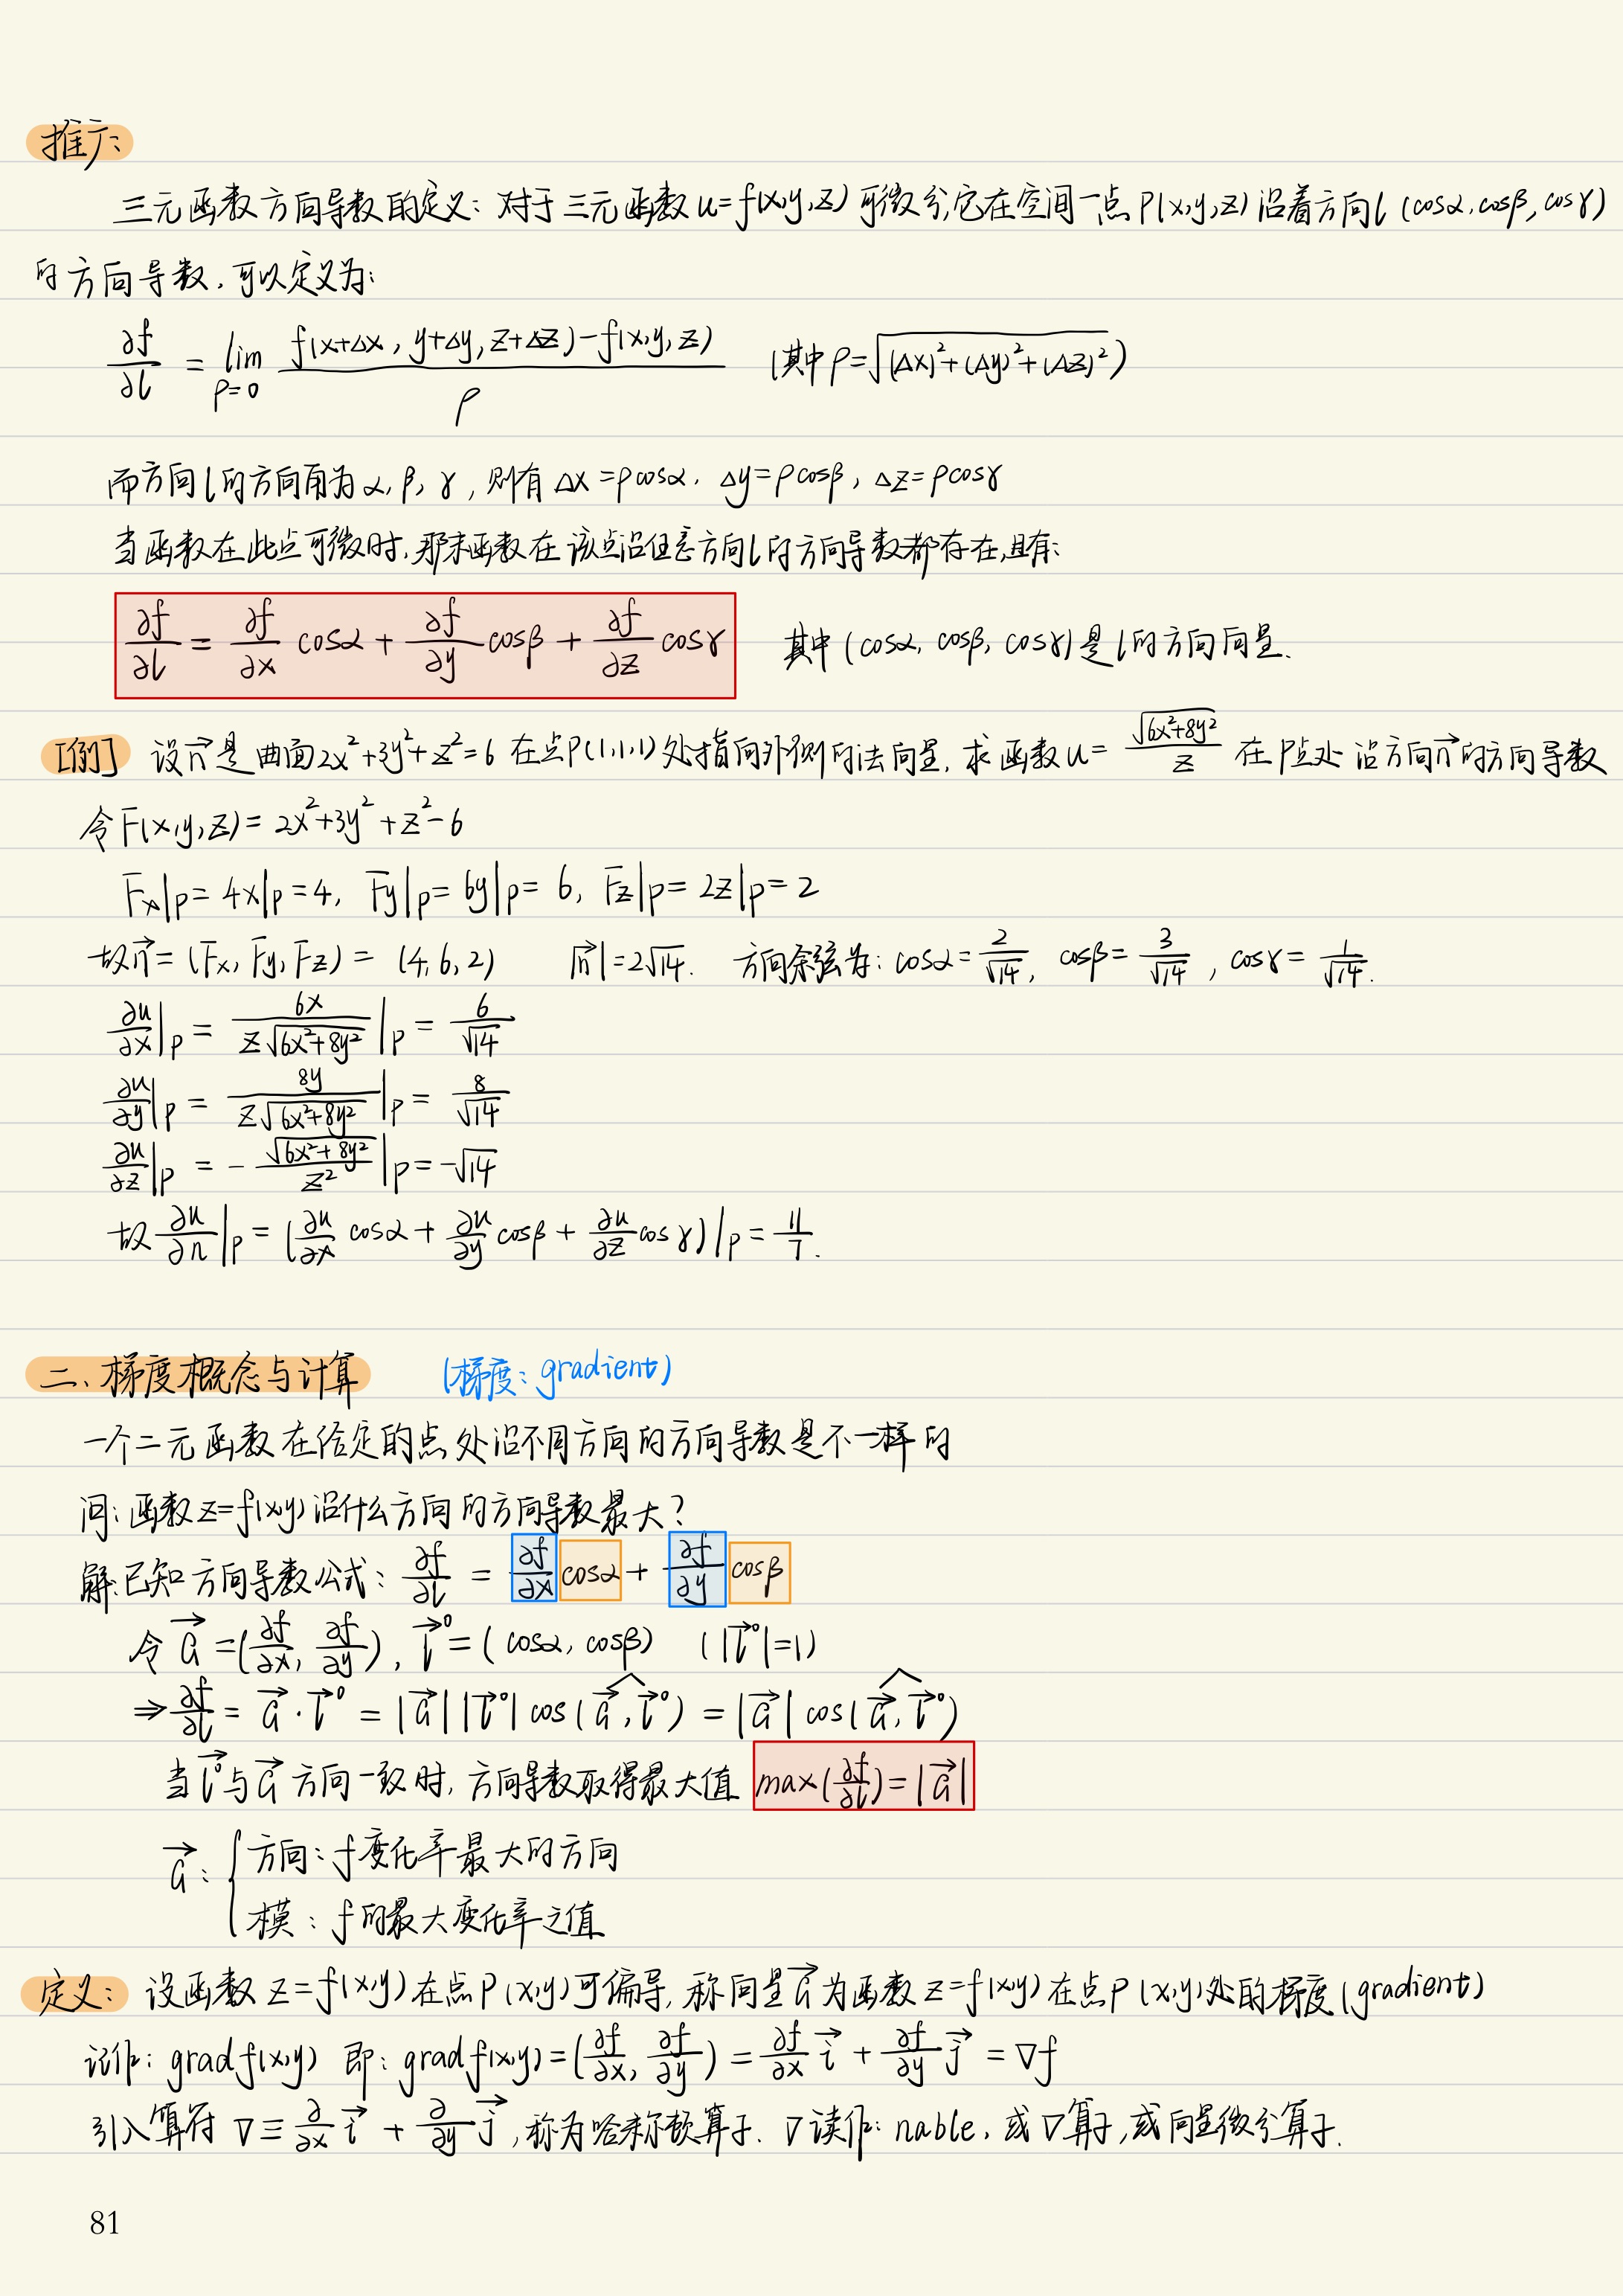 推广:
三元函数方向导数的定义: 对于三元函数 u=f(x,y,z) 可微分,它在空间一点 P(x,y,z) 沿着方向 l (cosα, cosβ, cosγ)
的方向导数,可以定义为:
∂f/∂l = lim_{ρ=0} [f(x+Δx, y+Δy, z+Δz)-f(x,y,z)]/ρ (其中 ρ=√((Δx)²+(Δy)²+(Δz)²))
而方向 l 的方向角为 α, β, γ, 则有 Δx=ρcosα, Δy=ρcosβ, Δz=ρcosγ
当函数在此点可微时,那末函数在该点沿任意方向 l 的方向导数都存在,且有:
∂f/∂l = ∂f/∂x cosα + ∂f/∂y cosβ + ∂f/∂z cosγ 其中 (cosα, cosβ, cosγ) 是 l 的方向向量.
[例] 设 n⃗ 是曲面 2x²+3y²+z²=6 在点P(1,1,1)处指向外侧的法向量, 求函数 u=√(6x²+8y²)/z 在P点处沿方向 n⃗ 的方向导数
令 F(x,y,z) = 2x²+3y²+z²-6
Fx|p = 4x|p = 4, Fy|p = 6y|p = 6, Fz|p = 2z|p = 2
故 n⃗ = (Fx, Fy, Fz) = (4, 6, 2) |n⃗|=2√14. 方向余弦为: cosα=2/√14, cosβ=3/√14, cosγ=1/√14.
∂u/∂x|p = 6x/(z√(6x²+8y²))|p = 6/√14
∂u/∂y|p = 8y/(z√(6x²+8y²))|p = 8/√14
∂u/∂z|p = -√(6x²+8y²)/z²|p = -√14
故 ∂u/∂n|p = (∂u/∂x cosα + ∂u/∂y cosβ + ∂u/∂z cosγ)|p = 11/7.
二、梯度概念与计算 (梯度: gradient)
一个二元函数在给定的点处沿不同方向的方向导数是不一样的
问: 函数 z=f(x,y) 沿什么方向的方向导数最大?
解:已知方向导数公式: ∂f/∂l = ∂f/∂x cosα + ∂f/∂y cosβ
令 G⃗ = (∂f/∂x, ∂f/∂y), l⃗⁰ = (cosα, cosβ) (|l⃗⁰|=1)
⇒ ∂f/∂l = G⃗·l⃗⁰ = |G⃗||l⃗⁰| cos(G⃗,^l⃗⁰) = |G⃗| cos(G⃗,^l⃗⁰)
当 l⃗⁰ 与 G⃗ 方向一致时, 方向导数取得最大值 max(∂f/∂l) = |G⃗|
G⃗: { 方向: f 变化率最大的方向
模: f 的最大变化率之值
定义: 设函数 z=f(x,y) 在点P(x,y)可偏导, 称向量 G⃗ 为函数 z=f(x,y) 在点P(x,y)处的梯度(gradient)
记作: gradf(x,y) 即: gradf(x,y) = (∂f/∂x, ∂f/∂y) = ∂f/∂x i⃗ + ∂f/∂y j⃗ = ∇f
引入算符 ∇ ≡ ∂/∂x i⃗ + ∂/∂y j⃗, 称为哈密顿算子. ∇读作: nable, 或∇算子,或向量微分算子.
81